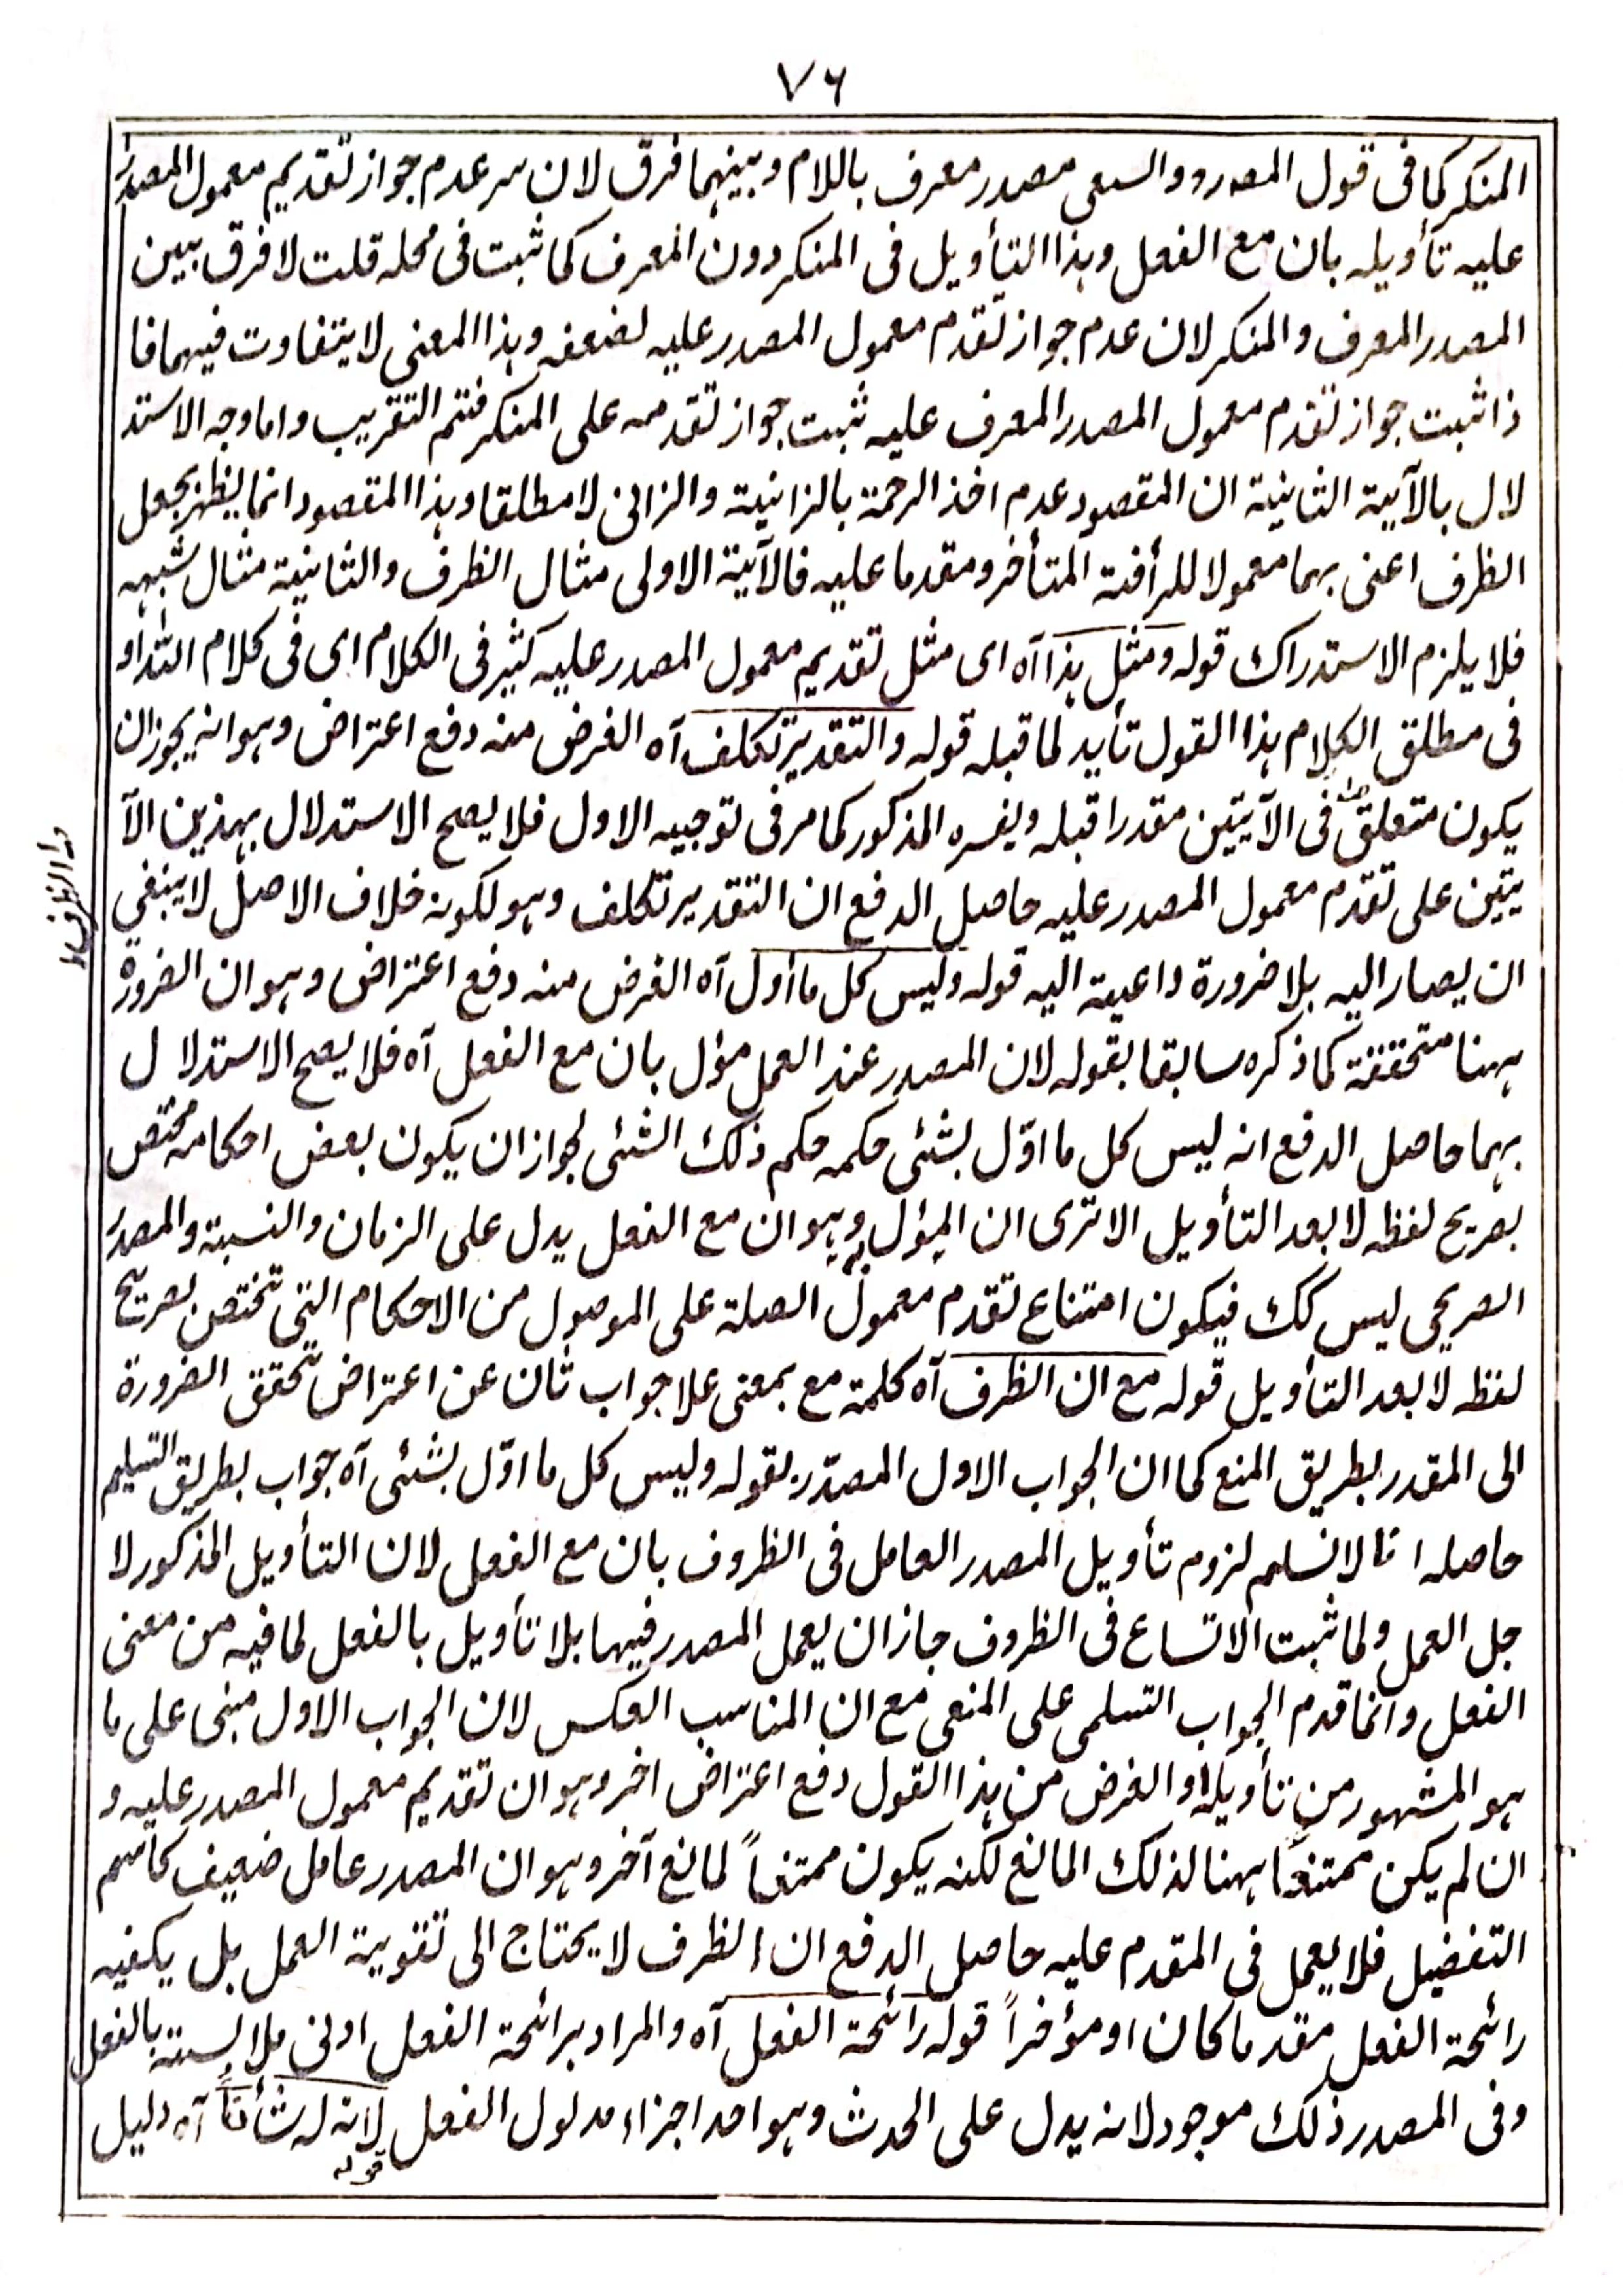 ٧٦
المنکر کما فی قول المصہ رہ والسعی مصدر معرف باللام وبینہما فرق لان سر عدم جواز تقدیم معمول المصدر
علیہ تأویلہ بان مع الفعل وہذا التأویل فی المنکر دون المعرف کما ثبت فی محلہ قلت لا فرق بین
المصدر المعرف والمنکر لان عدم جواز تقدم معمول المصدر علیہ لضعفہ وہذا المعنی لا یتفاوت فیہما فا
ذا ثبت جواز تقدم معمول المصدر المعرف علیہ ثبت جواز تقدمہ علی المنکر فتم التقریب واما وجہ الاستد
لال بالآیۃ الثانیۃ ان المقصود عدم اخذ الرحمۃ بالزانیۃ والزانی لا مطلقا وہذا المقصود انما یظہر بجعل
الظرف اعنی بہما معمولا للرأفۃ المتأخر ومقدما علیہ فالآیۃ الاولی مثال الظرف والثانیۃ مثال شبہہ
فلا یلزم الاستدراک قولہ ومثل ہذا آہ ای مثل تقدیم معمول المصدر علیہ کثیر فی الکلام ای فی کلام اللہ او
فی مطلق الکلام ہذا القول تأید لما قبلہ قولہ والتقدیر تکلف آہ الغرض منہ دفع اعتراض وہو انہ یجوز ان
یکون متعلق فی الآیتین مقدرا قبلہ ویفسرہ المذکور کما مر فی توجیہ الاول فلا یصح الاستدلال بہذین الآ
یتین علی تقدم معمول المصدر علیہ حاصل الدفع ان التقدیر تکلف وہو لکونہ خلاف الاصل لا ینبغی
ان یصار الیہ بلا ضرورۃ داعیۃ الیہ قولہ ولیس کل ما أول آہ الغرض منہ دفع اعتراض وہو ان الضرورۃ
ہہنا متحققۃ کما ذکرہ سابقا بقولہ لان المصدر عند العمل مؤل بان مع الفعل آہ فلا یصح الاستدلا ل
بہما حاصل الدفع انہ لیس کل ما اوّل بشئی حکمہ حکم ذلک الشئی لجواز ان یکون بعض احکامہ مختص
بصریح لفظہ لا بعد التأویل الا تری ان المؤل بہ وہو ان مع الفعل یدل علی الزمان والنسبۃ والمصدر
الصریحی لیس کک فیکون امتناع تقدم معمول الصلۃ علی الموصول من الاحکام التی تختص بصریح
لفظہ لا بعد التأویل قولہ مع ان الظرف آہ کلمۃ مع بمعنی علا جواب ثان عن اعتراض تحقق الضرورۃ
الی المقدر بطریق المنع کما ان الجواب الاول المصدّر بقولہ ولیس کل ما اوّل بشئی آہ جواب بطریق التسلیم
حاصلہ انا لا نسلم لزوم تأویل المصدر العامل فی الظروف بان مع الفعل لان التأویل المذکور لا
جل العمل ولما ثبت الاتساع فی الظروف جاز ان یعمل المصدر فیہا بلا تأویل بالفعل لما فیہ من معنی
الفعل وانما قدم الجواب التسلمی علی المنعی مع ان المناسب العکس لان الجواب الاول مبنی علی ما
ہو المشہور من تأویلہ او الغرض من ہذا القول دفع اعتراض اخر وہو ان تقدیم معمول المصدر علیہ و
ان لم یکن ممتنعاً ہہنا لذلک المانع لکنہ یکون ممتنعاً لمانع آخر وہو ان المصدر عامل ضعیف کاسم
التفضیل فلا یعمل فی المقدم علیہ حاصل الدفع ان الظرف لا یحتاج الی تقویۃ العمل بل یکفیہ
رائحۃ الفعل مقدما کان او مؤخراً قولہ رائحۃ الفعل آہ والمراد برائحۃ الفعل ادنی ملابستہ بالفعل
وفی المصدر ذلک موجود لانہ یدل علی الحدث وہو احد اجزاء مدلول الفعل لانہ لہ شأناً آہ دلیل
قولہ